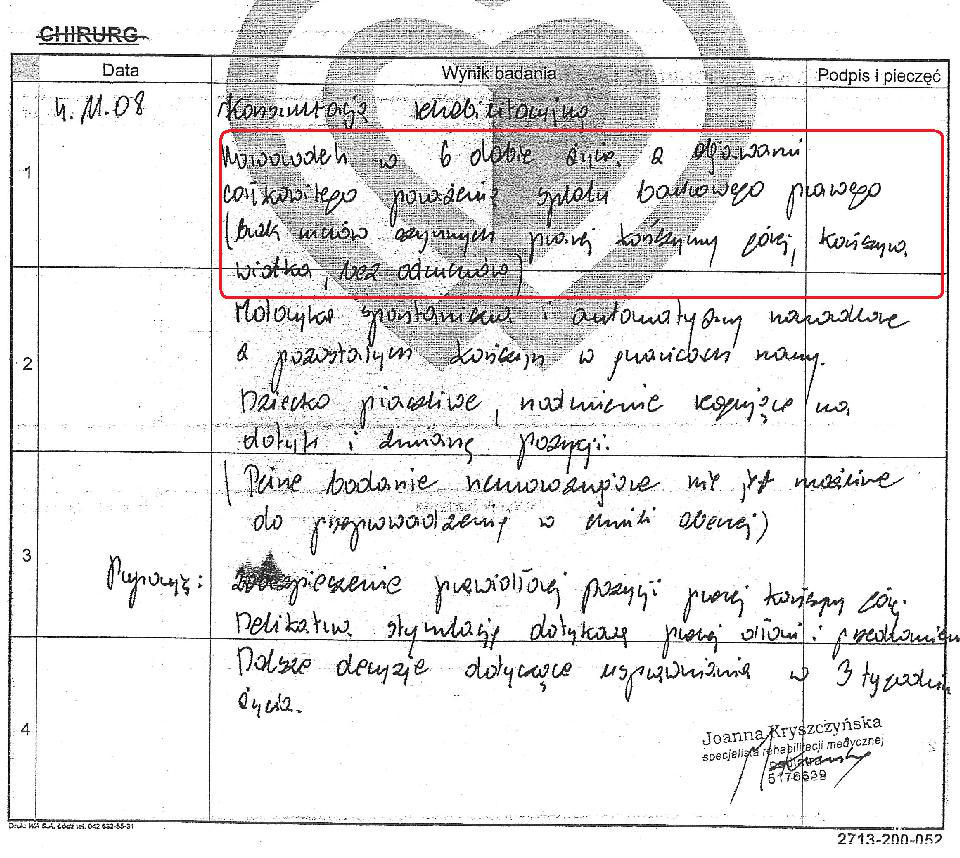 CHIRURG
Data Wynik badania Podpis i pieczęć
4.11.08 Konsultacja rehabilitacyjna
1 Noworodek w 6 dobie życia, z objawami
całkowitego porażenia splotu barkowego prawego
(brak ruchów czynnych prawej kończyny górnej, kończyna
wiotka, bez odruchów)
Motoryka spontaniczna i automatyzmy
2 z pozostałych kończyn w granicach normy.
Dziecko płaczliwe, nadmiernie reagujące na
dotyk i zmianę pozycji.
(Pełne badanie neurorozwojowe nie jest możliwe
do przeprowadzenia w chwili obecnej)
3 Proponuję: Zabezpieczenie prawidłowej pozycji prawej kończyny górnej.
Delikatna stymulacja dotykowa prawej dłoni i przedramienia
Dalsze decyzje dotyczące usprawniania w 3 tygodniu
życia.
4
Joanna Kryszczyńska
specjalista rehabilitacji medycznej
5178639
2713-200-052